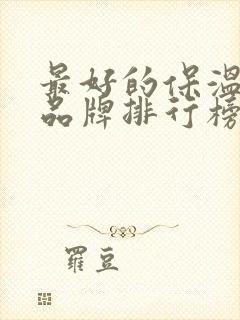 最好的保温
品牌排行榜
羅豆